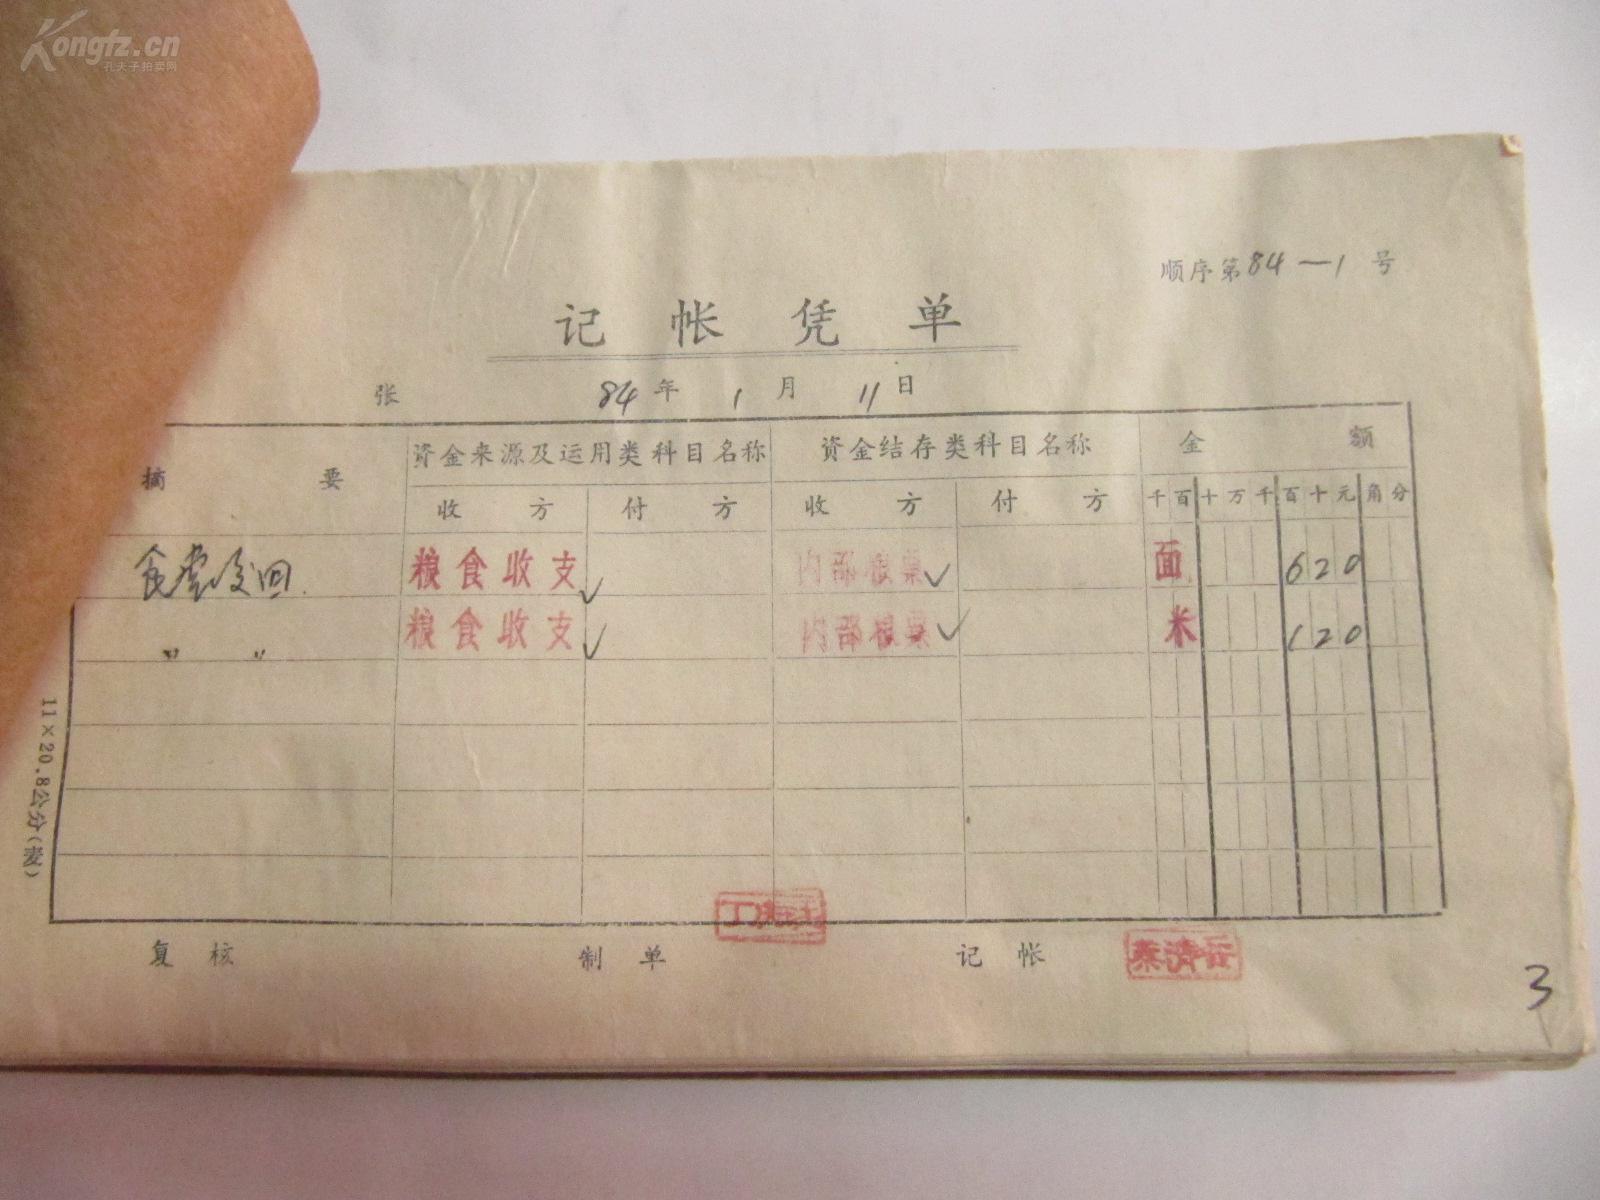 Kongfz.cn
孔夫子拍卖网
顺序第84—1号
记帐凭单
张 84年1月11日
摘要 资金来源及运用类科目名称 资金结存类科目名称 金额
收方 付方 收方 付方 千百十万千百十元角分
食堂收回 粮食收支 ✓ 内部粮票 ✓ 面 620
〃 〃 粮食收支 ✓ 内部粮票 ✓ 米 120
11×20.8公分(麦)
复核 制单 记帐
3